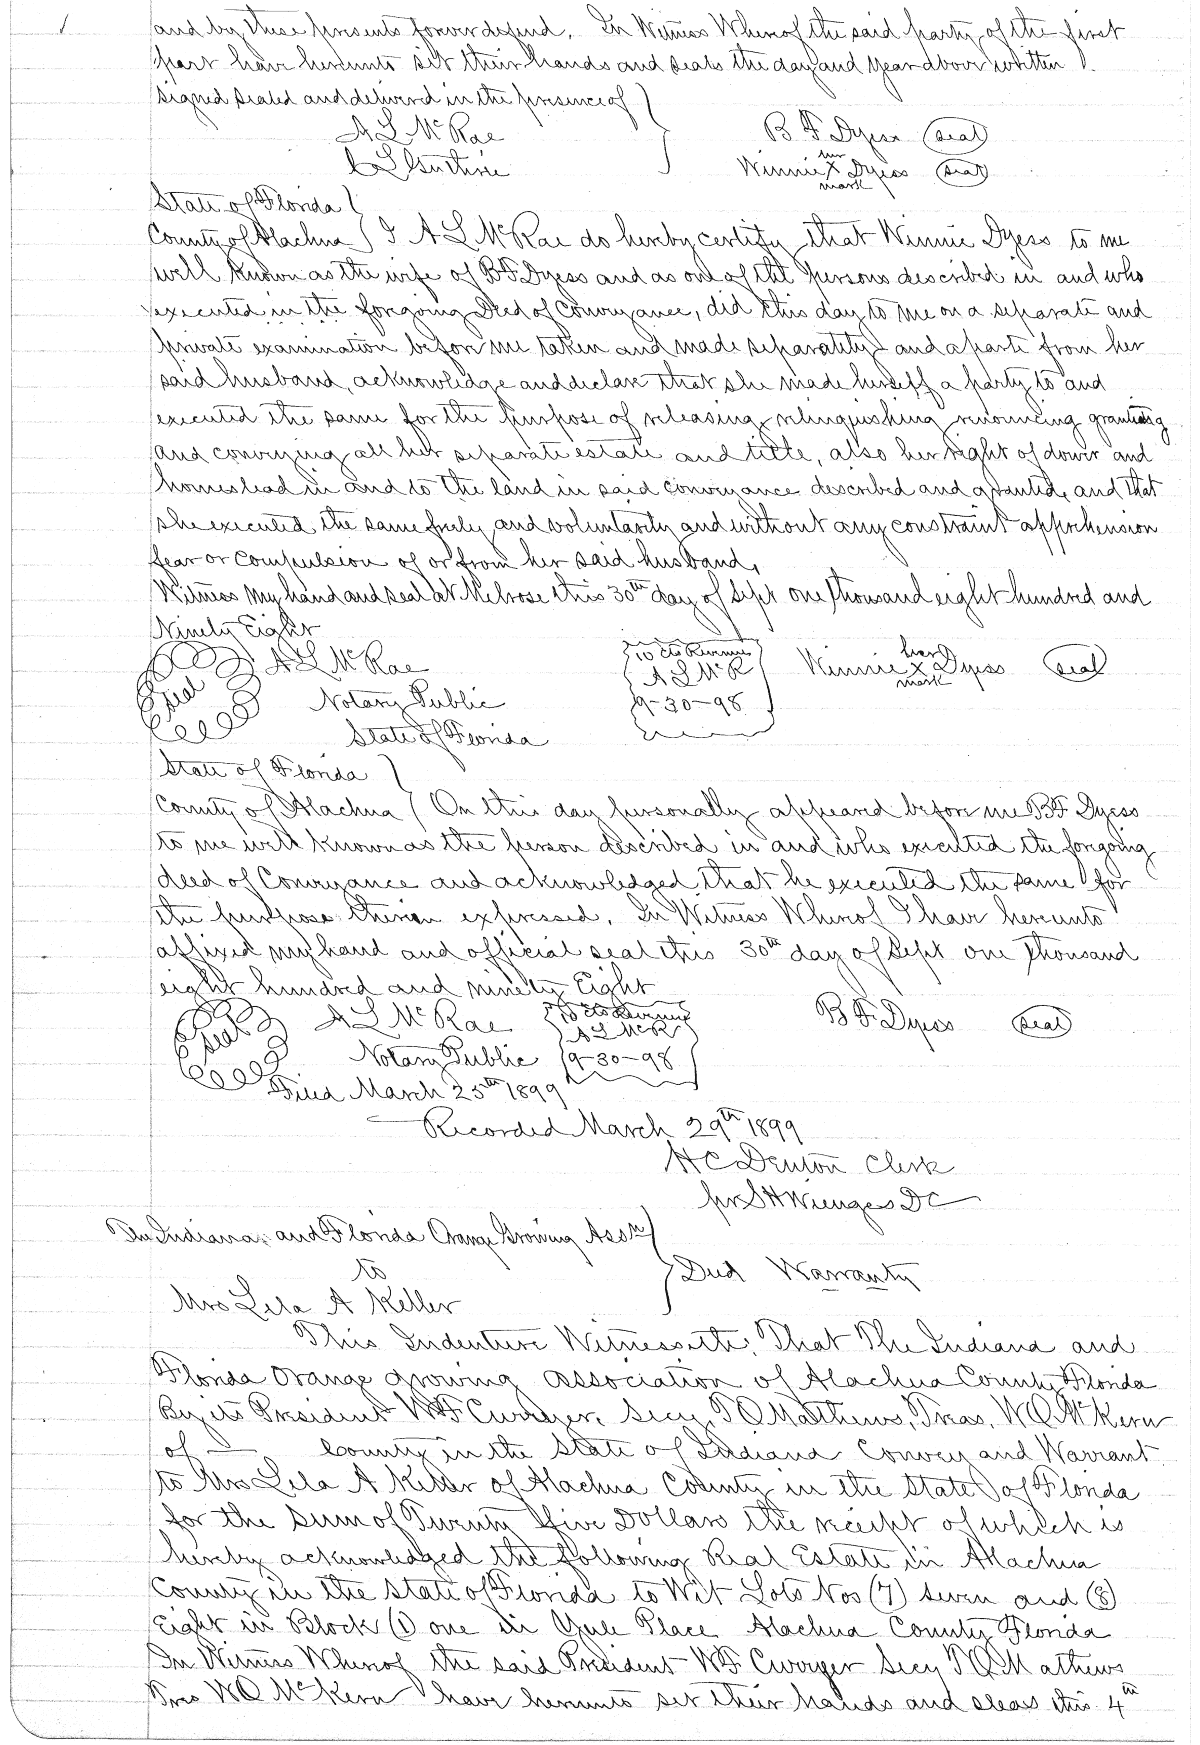 and by these presents forever defend. In Witness Whereof the said party of the first
part have hereunto set their hands and seals the day and year above written.
Signed sealed and delivered in the presence of }
A L McRae } B F Dyess (seal)
C L Guthrie Winnie her X mark Dyess (seal)
State of Florida }
County of Alachua } I A L McRae do hereby certify that Winnie Dyess to me
well known as the wife of B F Dyess and as one of the persons described in and who
executed in the forgoing Deed of Conveyance, did this day to me on a separate and
private examination before me taken and made separately and aparte from her
said husband, acknowledge and declare that she made herself a party to and
executed the same for the purpose of releasing, relinquishing renouncing granting
and conveying all her separate estate and title, also her right of dower and
homestead in and to the land in said conveyance described and granted, and that
she executed the same freely and voluntarily and without any constraint apprehension
fear or compulsion of or from her said husband,
Witness my hand and seal at Melrose this 30th day of Sept one thousand eight hundred and
Ninety Eight
Seal A L McRae 10 cts Revenue A L McR 9-30-98 Winnie her X mark Dyess (seal)
Notary Public
State of Florida
State of Florida }
County of Alachua } On this day personally appeared before me B F Dyess
to me well known as the person described in and who executed the forgoing
deed of Conveyance and acknowledged that he executed the same for
the purpose therein expressed. In Witness Whereof I have hereunto
affixed my hand and official seal this 30th day of Sept one thousand
eight hundred and ninety Eight
Seal A L McRae 10 cts Revenue A L McR 9-30-98 B F Dyess (seal)
Notary Public
Filed March 25th 1899
Recorded March 29th 1899
H C Denton Clerk
per S H Wienges DC
The Indiana and Florida Orange Growing Assn }
to } Deed Warranty
Mrs Lela A Keller
This Indenture Witnesseth, That The Indiana and
Florida Orange growing association of Alachua County Florida
By its President W F Curryer, Secy, T O Matthews, Treas, W O McKern
of — County in the State of Indiana Convey and Warrant
to Mrs Lela A Keller of Alachua County in the State of Florida
for the sum of Twenty five Dollars the receipt of which is
hereby acknowledged the following Real Estate in Alachua
County in the State of Florida to Wit Lots Nos (7) seven and (8)
Eight in Block (1) one in Yule Place Alachua County Florida
In Witness Whereof the said President W F Curryer Secy T O Mathews
Tres W O McKern have hereunto set their hands and sleas this 4th